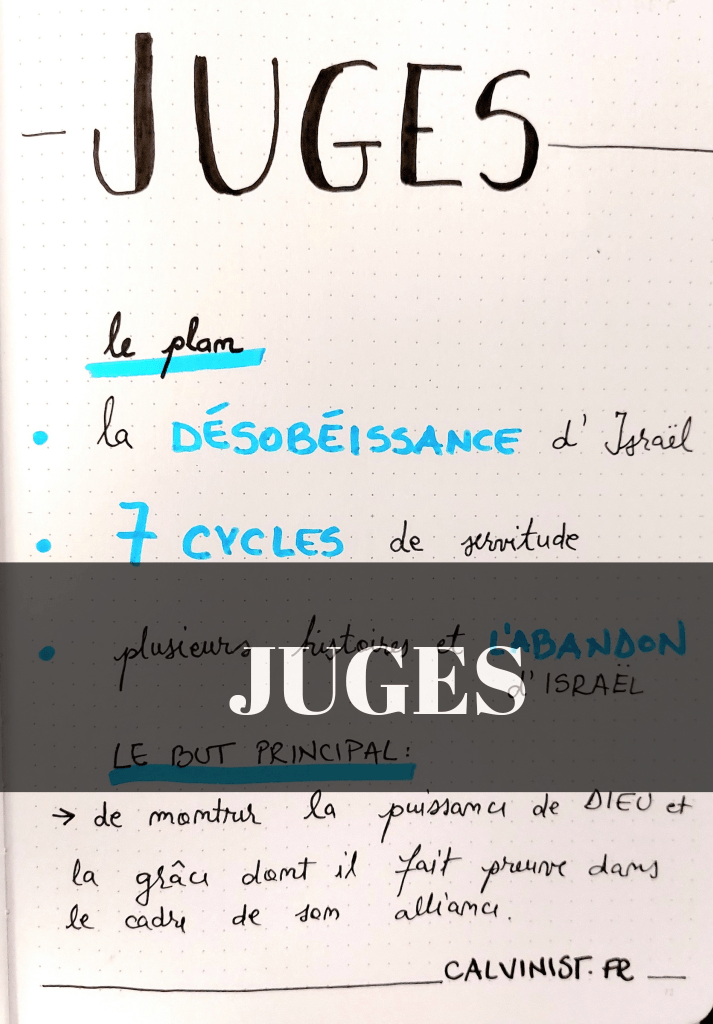 JUGES
le plan
• la DÉSOBÉISSANCE d'Israël
• 7 CYCLES de servitude
• plusieurs histoires et L'ABANDON
d'ISRAËL
JUGES
LE BUT PRINCIPAL:
→ de montrer la puissance de DIEU et
la grâce dont il fait preuve dans
le cadre de son alliance.
CALVINIST.FR